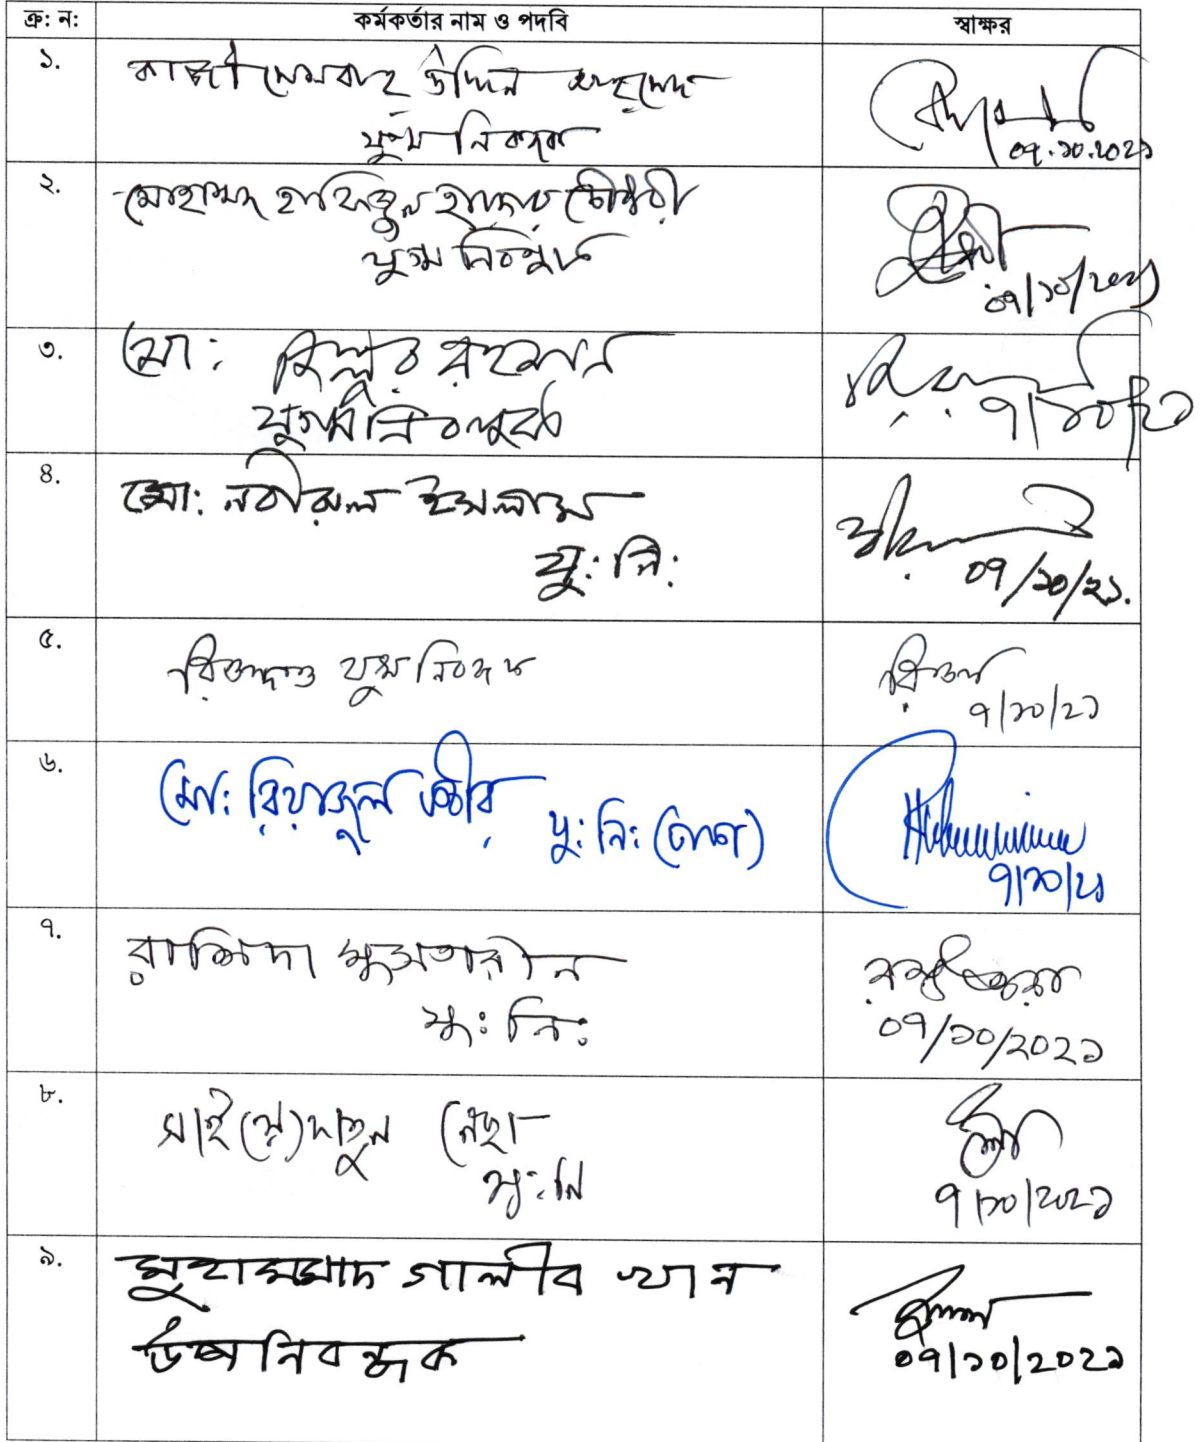 ক্র: ন: কর্মকর্তার নাম ও পদবি স্বাক্ষর
১. কাজী মেসবাহ উদ্দিন আহমেদ
যুগ্ম নিবন্ধক
০৭.১০.২০২১
২. মোহাম্মদ হাফিজুল হায়দার চৌধুরী
যুগ্ম নিবন্ধক
০৭/১০/২০২১
৩. মো: জিল্লুর রহমান
যুগ্ম নিবন্ধক
৭/১০/২১
৪. মো: নবীরুল ইসলাম
যু: নি:
০৭/১০/২১.
৫. রিক্তা দত্ত যুগ্ম নিবন্ধক
৭/১০/২১
৬. মো: রিয়াজুল কবীর, যু: নি: (ঢাকা)
৭/১০/২১
৭. রাশিদা মুসতারীন
যু: নি:
০৭/১০/২০২১
৮. সাই(য়ে)দাতুন নেছা
যু: নি
৭/১০/২০২১
৯. মুহাম্মাদ গালীব খান
উপ্পনিবন্ধক
০৭/১০/২০২১